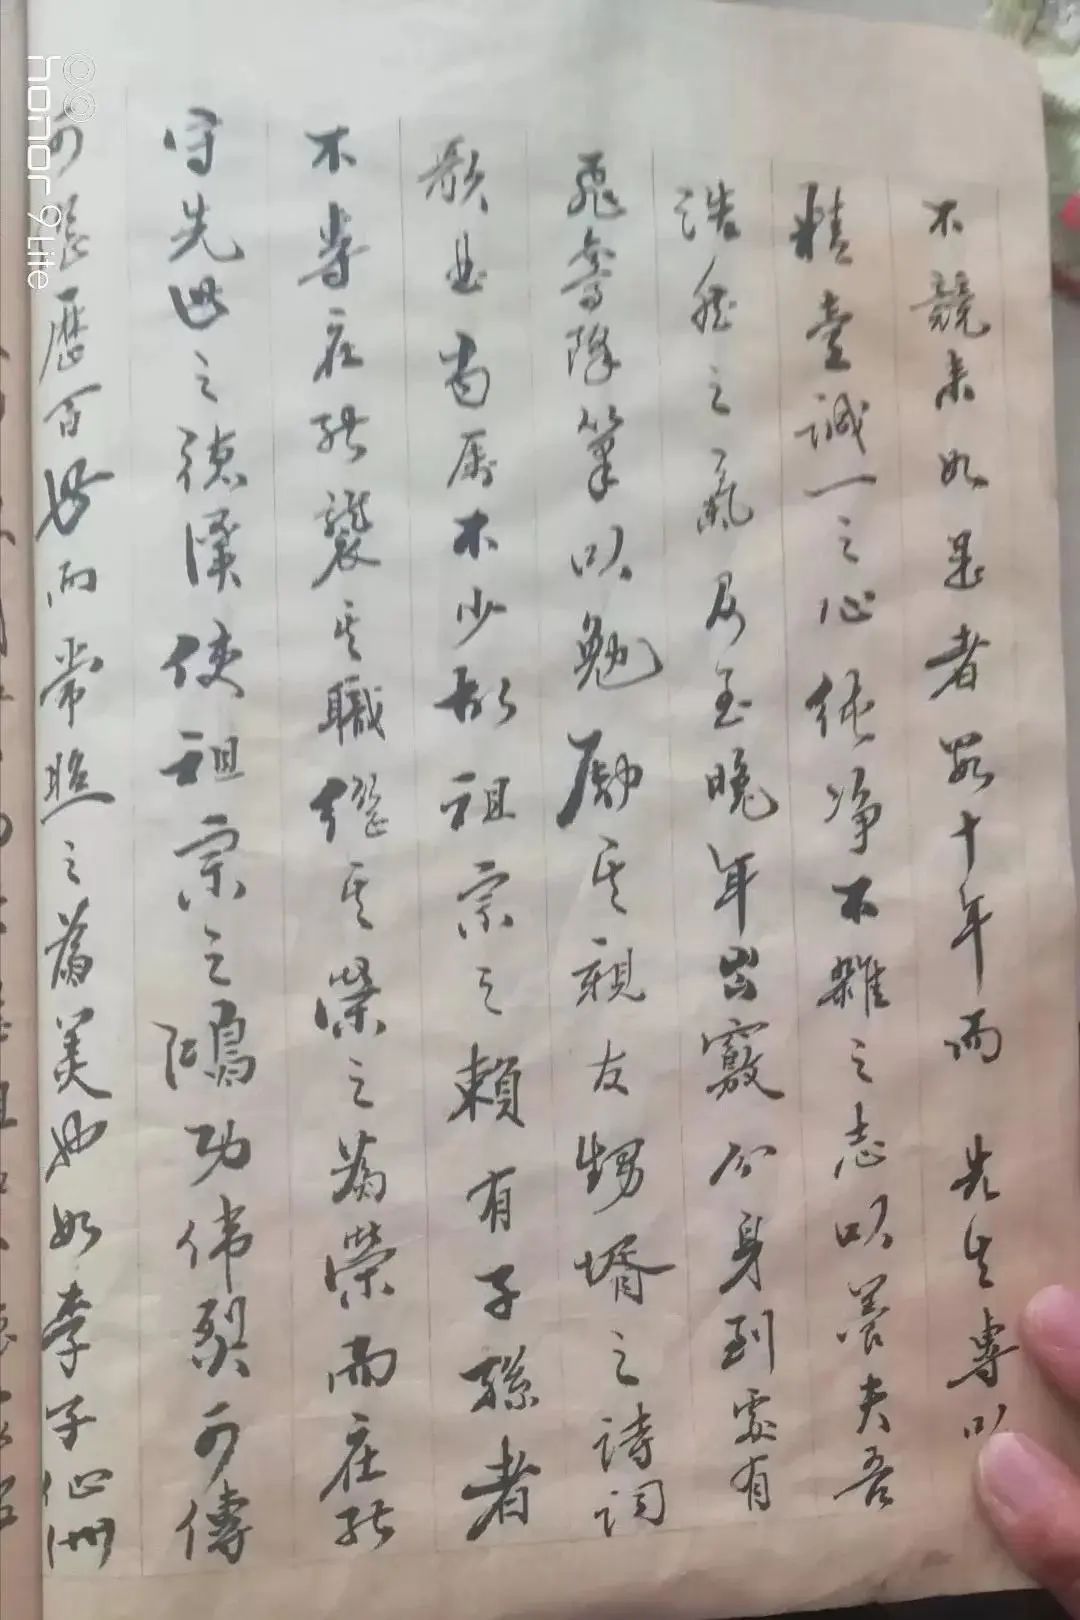 不競未如是者數十年而 先生專以
精堂誠一之心純净不雜之志以養夫吾
浩然之氣及至晚年出竅分身到處有
飛鸾降筆以勉勵其親友甥壻之詩詞
歌曲者屬不少故祖宗之賴有子孫者
不専在能襲其職繼其榮之為榮而在能
守先世之德澤使祖宗之鴻功偉烈可傳
可 歷百世而常照之為美也如李子仙洲
honor 9 Lite